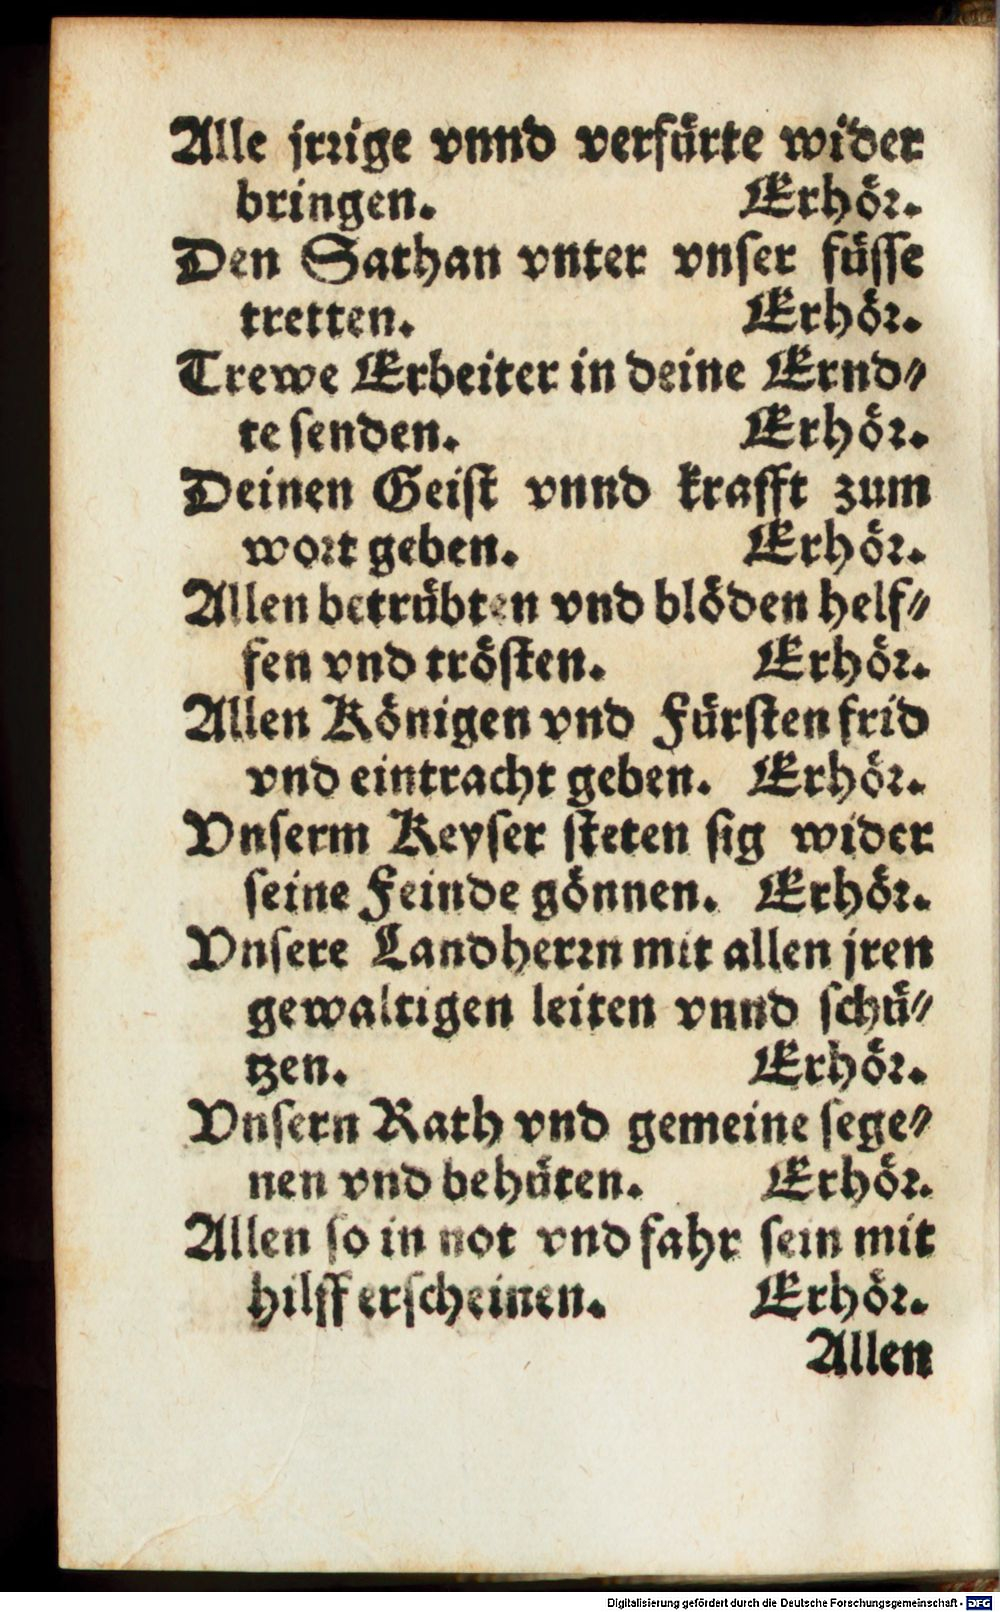 Alle jrrige vnnd verfürte wider
bringen. Erhör.
Den Sathan vnter vnser füsse
tretten. Erhör.
Trewe Erbeiter in deine Ernd⸗
te senden. Erhör.
Deinen Geist vnnd krafft zum
wort geben. Erhör.
Allen betrübten vnd blöden helf⸗
fen vnd trösten. Erhör.
Allen Königen vnd Fürsten frid
vnd eintracht geben. Erhör.
Vnserm Keyser steten sig wider
seine Feinde gönnen. Erhör.
Vnsere Landherrn mit allen jren
gewaltigen leiten vnnd schü⸗
tzen. Erhör.
Vnsern Rath vnd gemeine sege⸗
nen vnd behüten. Erhör.
Allen so in not vnd fahr sein mit
hilff erscheinen. Erhör.
Allen
Digitalisierung gefördert durch die Deutsche Forschungsgemeinschaft - DFG